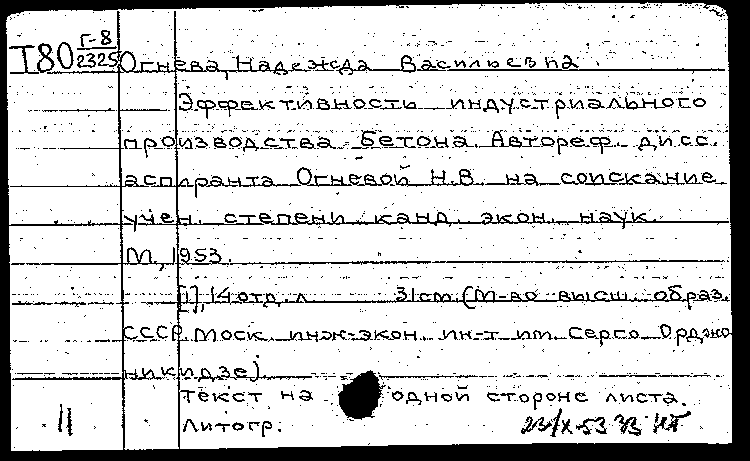 Г-8
Т80 2325
Огнева, Надежда Васильевна.
Эффективность индустриального
производства бетона. Автореф. дисс.
аспиранта Огневой Н.В. на соискание
учен. степени канд. экон. наук.
М., 1953.
[1], 14 отд. л 31 см. (М-во высш. образ.
СССР. Моск. инж-экон. ин-т им. Серго Орджо
никидзе)
Текст на одной стороне листа.
Литогр.
11
23/X-53